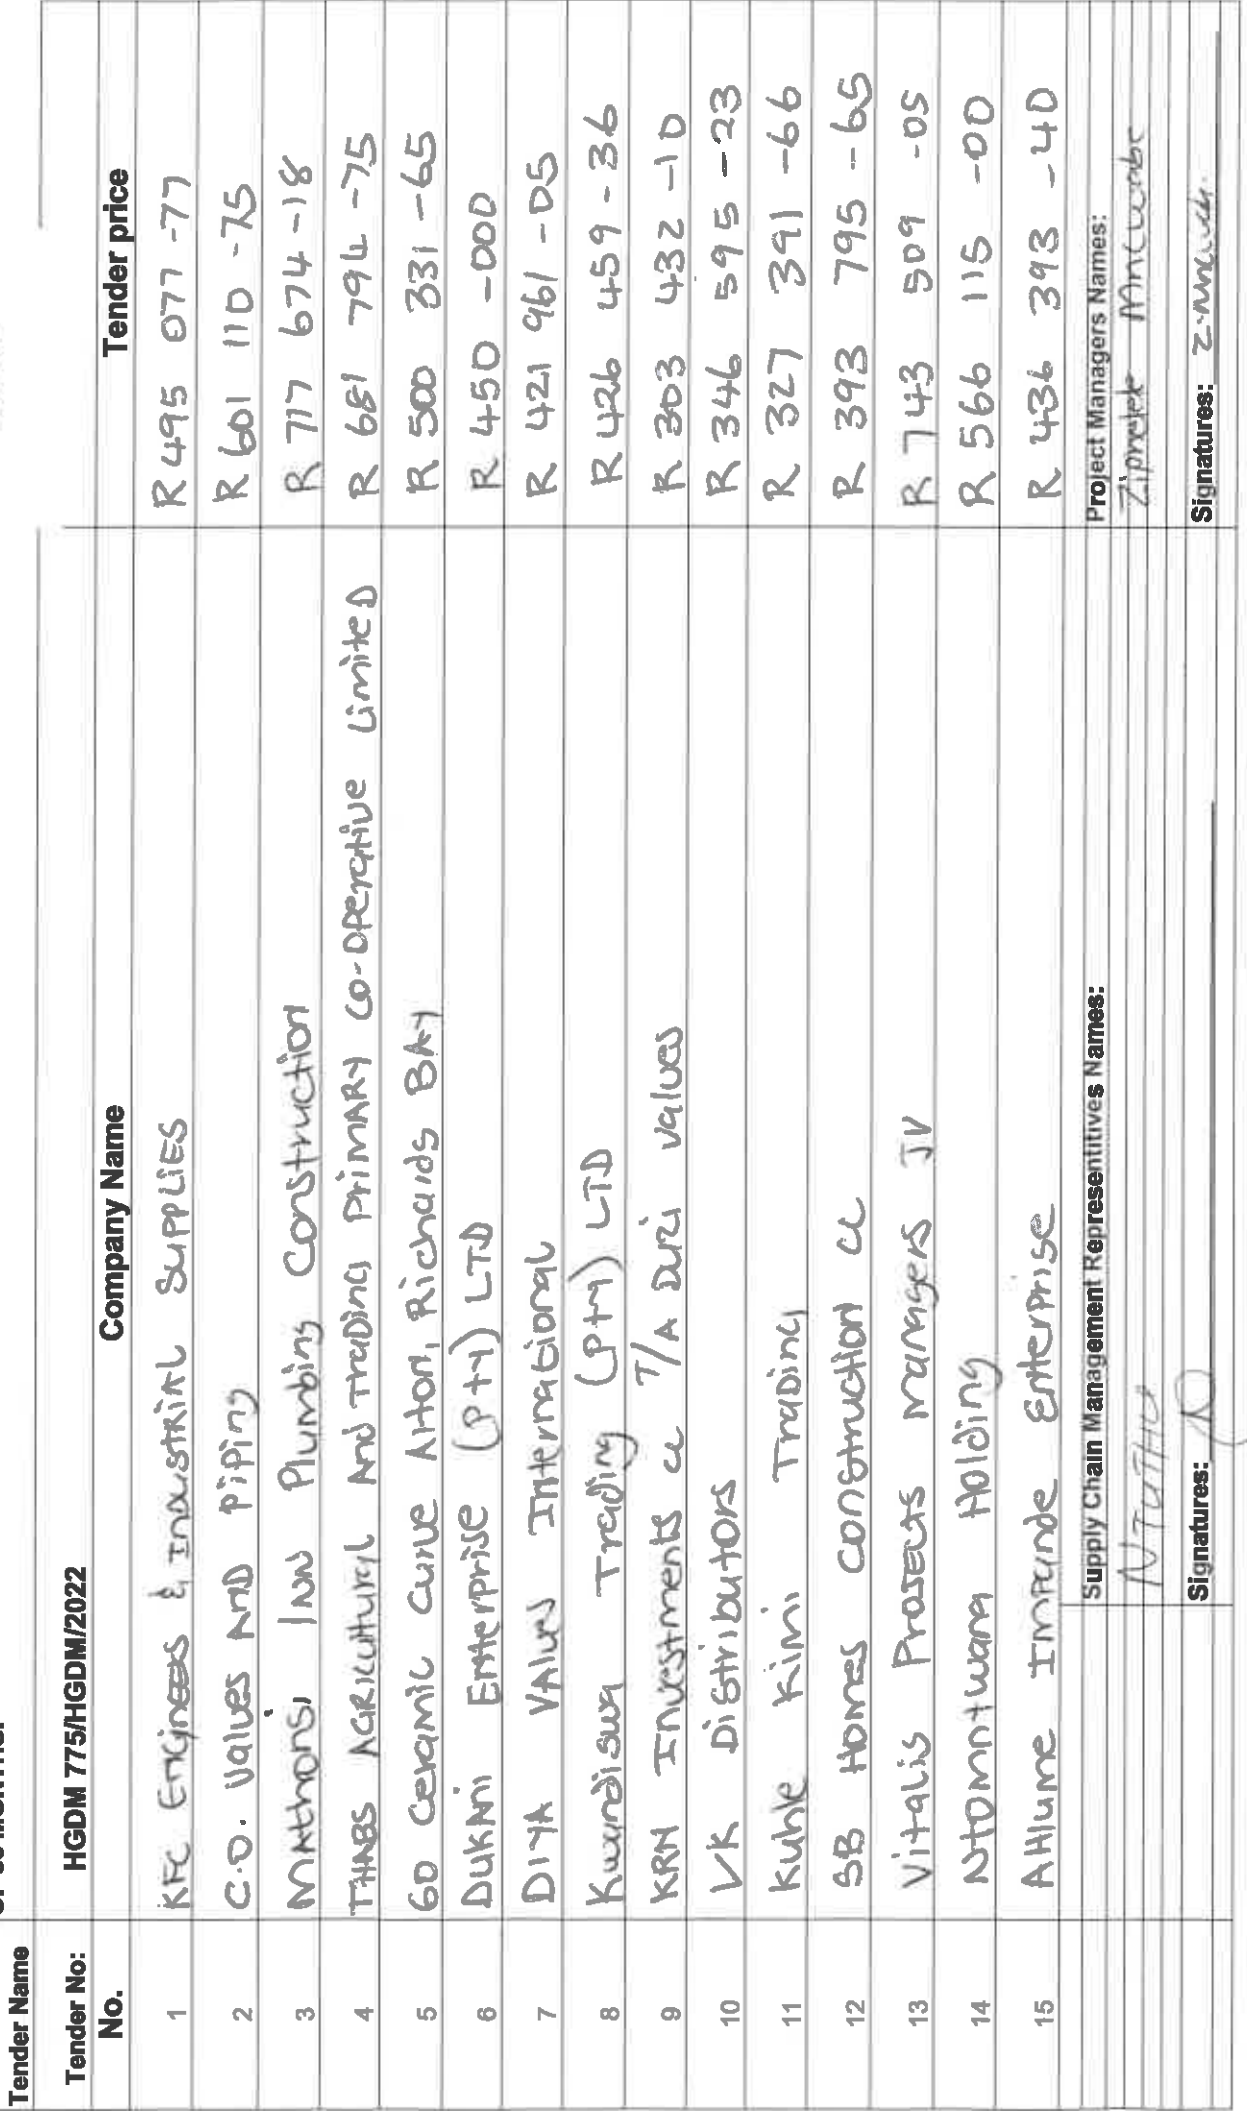 Tender Name
Tender No: HGDM 775/HGDM/2022
No. Company Name Tender price
1 KFC Engineers & Industrial Supplies R 495 077 -77
2 C.O. Valves And Piping R 601 110 -75
3 Mathonsi Inn Plumbing Construction R 777 674 -18
4 THABS AGRICULTURAL And Trading Primary Co-operative Limited R 681 794 -75
5 60 Ceramic Curve Alton, Richards Bay R 500 331 -65
6 Dukani Enterprise (Pty) LTD R 450 -000
7 DIYA Valves International R 421 961 -05
8 Kwandiswa Trading (Pty) LTD R 426 459 -36
9 KRN Investments cc T/A Valves R 303 432 -10
10 VK Distributors R 346 595 -23
11 Kuhle Kimi Trading R 327 391 -66
12 SB Homes Construction cc R 393 795 -65
13 Vitalis Projects Managers JV R 743 509 -05
14 Ntomntwana Holding R 566 115 -00
15 Ahlume Impande Enterprise R 436 393 -40
Supply Chain Management Representitives Names: Project Managers Names:
Signatures: Signatures: